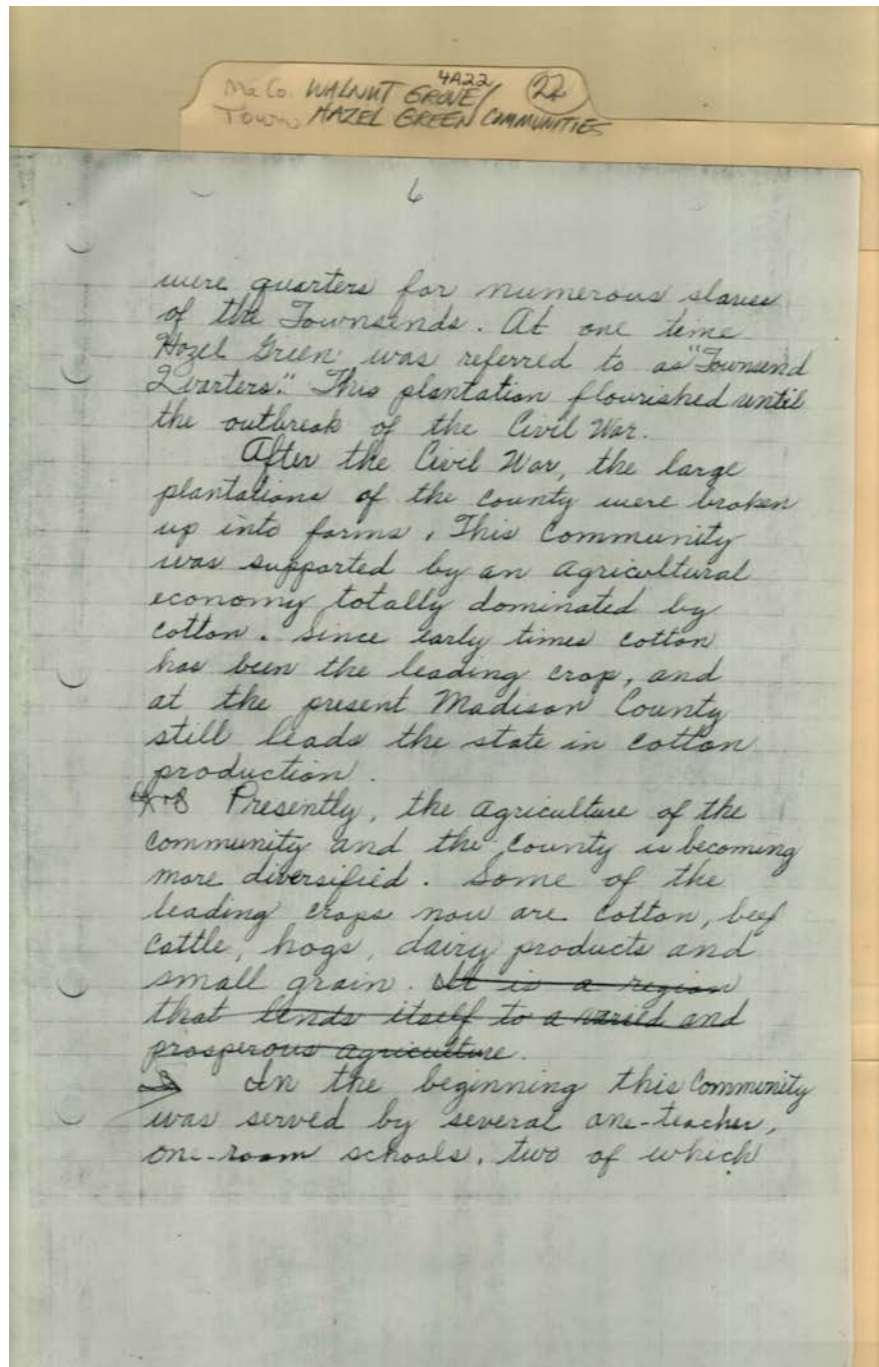 4A22
Ma Co. WALNUT GROVE/ 22
Town HAZEL GREEN COMMUNITIES
6
were quarters for numerous slaves
of the Townsends. At one time
Hazel Green was referred to as "Townsend
Quarters." This plantation flourished until
the outbreak of the Civil War.
After the Civil War, the large
plantations of the county were broken
up into farms. This Community
was supported by an agricultural
economy totally dominated by
cotton. Since early times cotton
has been the leading crop, and
at the present Madison County
still leads the state in cotton
production.
Presently, the agriculture of the
community and the County is becoming
more diversified. Some of the
leading crops now are cotton, beef
cattle, hogs, dairy products and
small grain. It is a region
that lends itself to a varied and
prosperous agriculture.
In the beginning this Community
was served by several one-teacher,
one-room schools, two of which